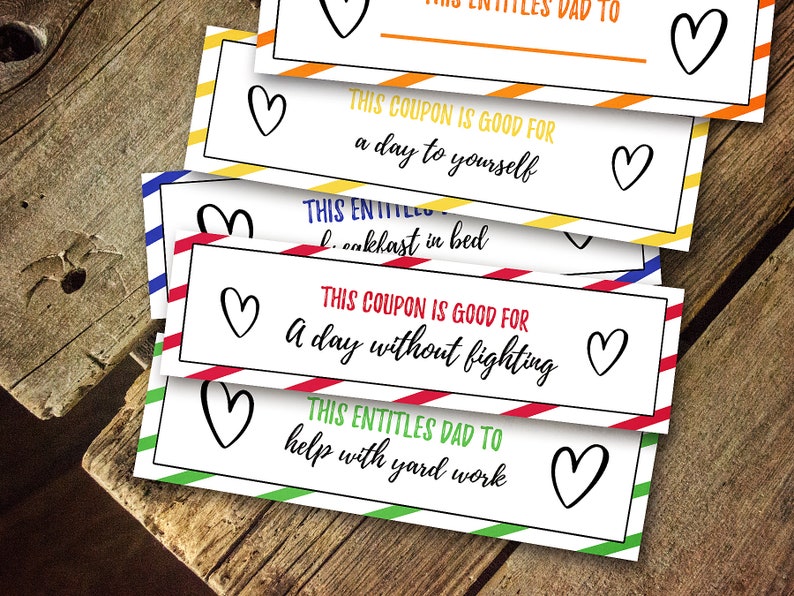 THIS ENTITLES DAD TO
THIS COUPON IS GOOD FOR
a day to yourself
THIS ENTITLES
breakfast in bed
THIS COUPON IS GOOD FOR
A day without fighting
THIS ENTITLES DAD TO
help with yard work